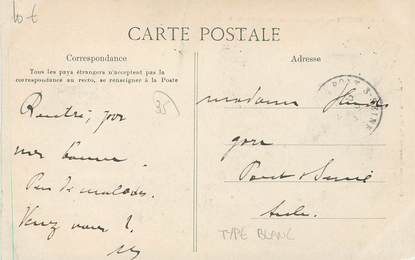 10 €
CARTE POSTALE
Correspondance
Tous les pays étrangers n'acceptent pas la
correspondance au recto, se renseigner à la Poste
Adresse
35
Rentré, pour
Pas de malades.
Venez vous ?
madame
gare
Pont s/ Seine
Aube
TYPE BLANC